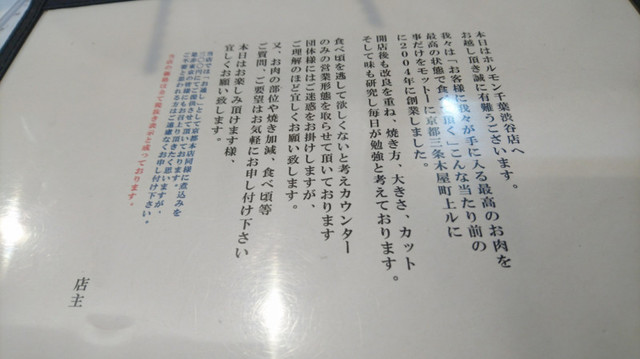 本日はホルモン千葉渋谷店へ
お越し頂き誠に有難うございます。
我々は「お客様に我々が手に入る最高のお肉を
最高の状態で食べて頂く」こんな当たり前の
事だけをモットーに京都三条木屋町上ルに
に2004年に創業しました。
開店後も改良を重ね、焼き方、大きさ、カット
そして味も研究し毎日が勉強と考えております。
食べ頃を逃して欲しくないと考えカウンター
のみの営業形態を取らせて頂いております
団体様にはご迷惑をお掛けしますが、
ご理解のほど宜しくお願い致します。
又、お肉の部位や焼き加減、食べ頃等
ご質問、ご要望はお気軽にお申し付け下さい
本日はお楽しみ頂けます様、
宜しくお願い致します。
当店では
として京都本店同様に煮込みを
ご遠慮なくお申し付け下さい。
当店の価格は全て税抜き表示と成っております。
店主